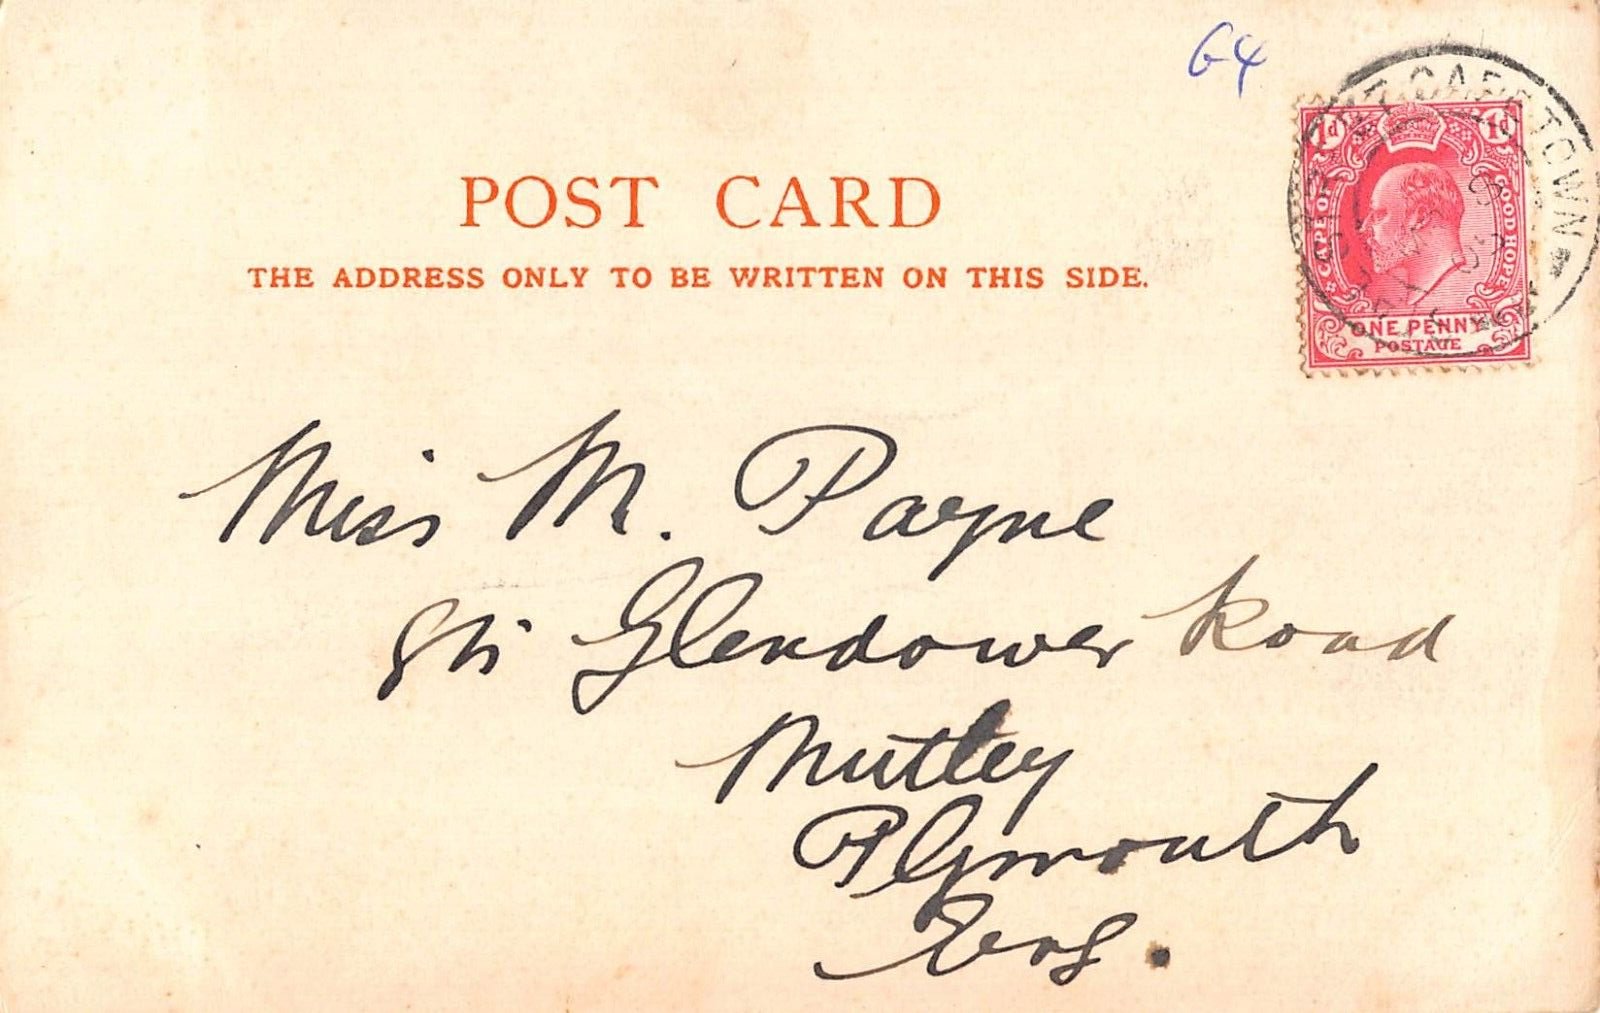 64
POST CARD
THE ADDRESS ONLY TO BE WRITTEN ON THIS SIDE.
CAPE TOWN
1d 1d
CAPE OF GOOD HOPE
ONE PENNY
POSTAGE
Miss M. Payne
Glendower Road
Mutley
Plymouth
Eng.